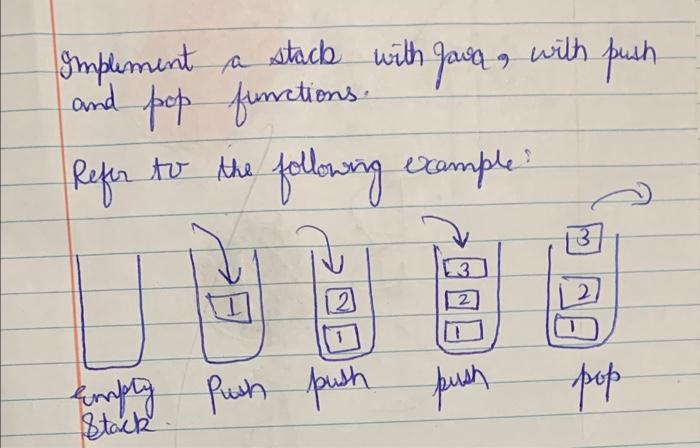 Implement a stack with Java, with push
and pop functions.
Refer to the following example:
1
2
1
3
2
1
3
2
1
Empty Stack.
Push
push
push
pop